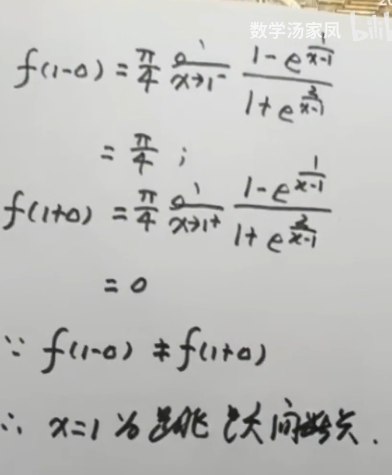 数学汤家凤 bili
f(1-0) = π/4 lim x→1⁻ (1-e^(1/(x-1)))/(1+e^(2/(x-1)))
= π/4 ;
f(1+0) = π/4 lim x→1⁺ (1-e^(1/(x-1)))/(1+e^(2/(x-1)))
= 0
∵ f(1-0) ≠ f(1+0)
∴ x=1 为跳跃间断点.